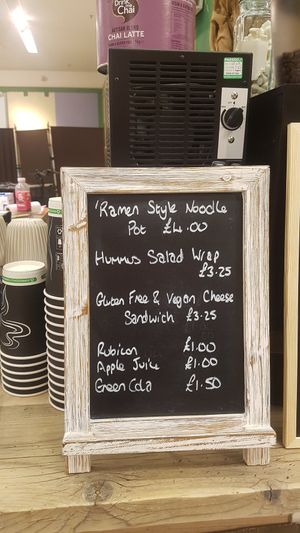 Drink
Chai
CHAI LATTE
'Ramen Style Noodle
Pot £4.00
Hummus Salad Wrap
£3.25
Gluten Free & Vegan Cheese
Sandwich £3.25
Rubicon £1.00
Apple Juice £1.00
Green Cola £1.50